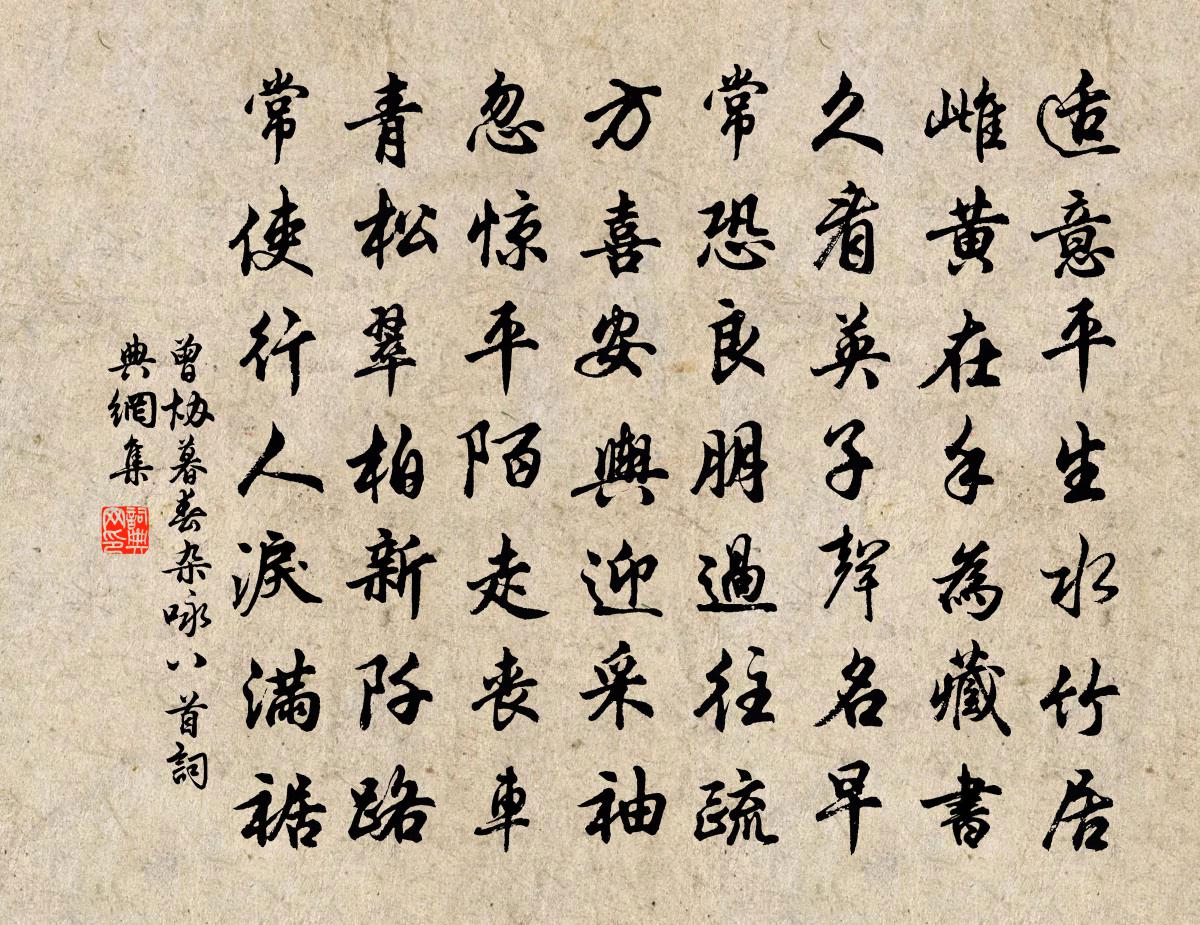 适意平生水竹居
雌黄在手為藏書
久看英子聲名早
常恐良朋過往疏
方喜安輿迎采袖
忽惊平陌走喪車
青松翠柏新阡路
常使行人淚滿裾
曾协暮春杂咏八首詞
典網集
詞典
网印